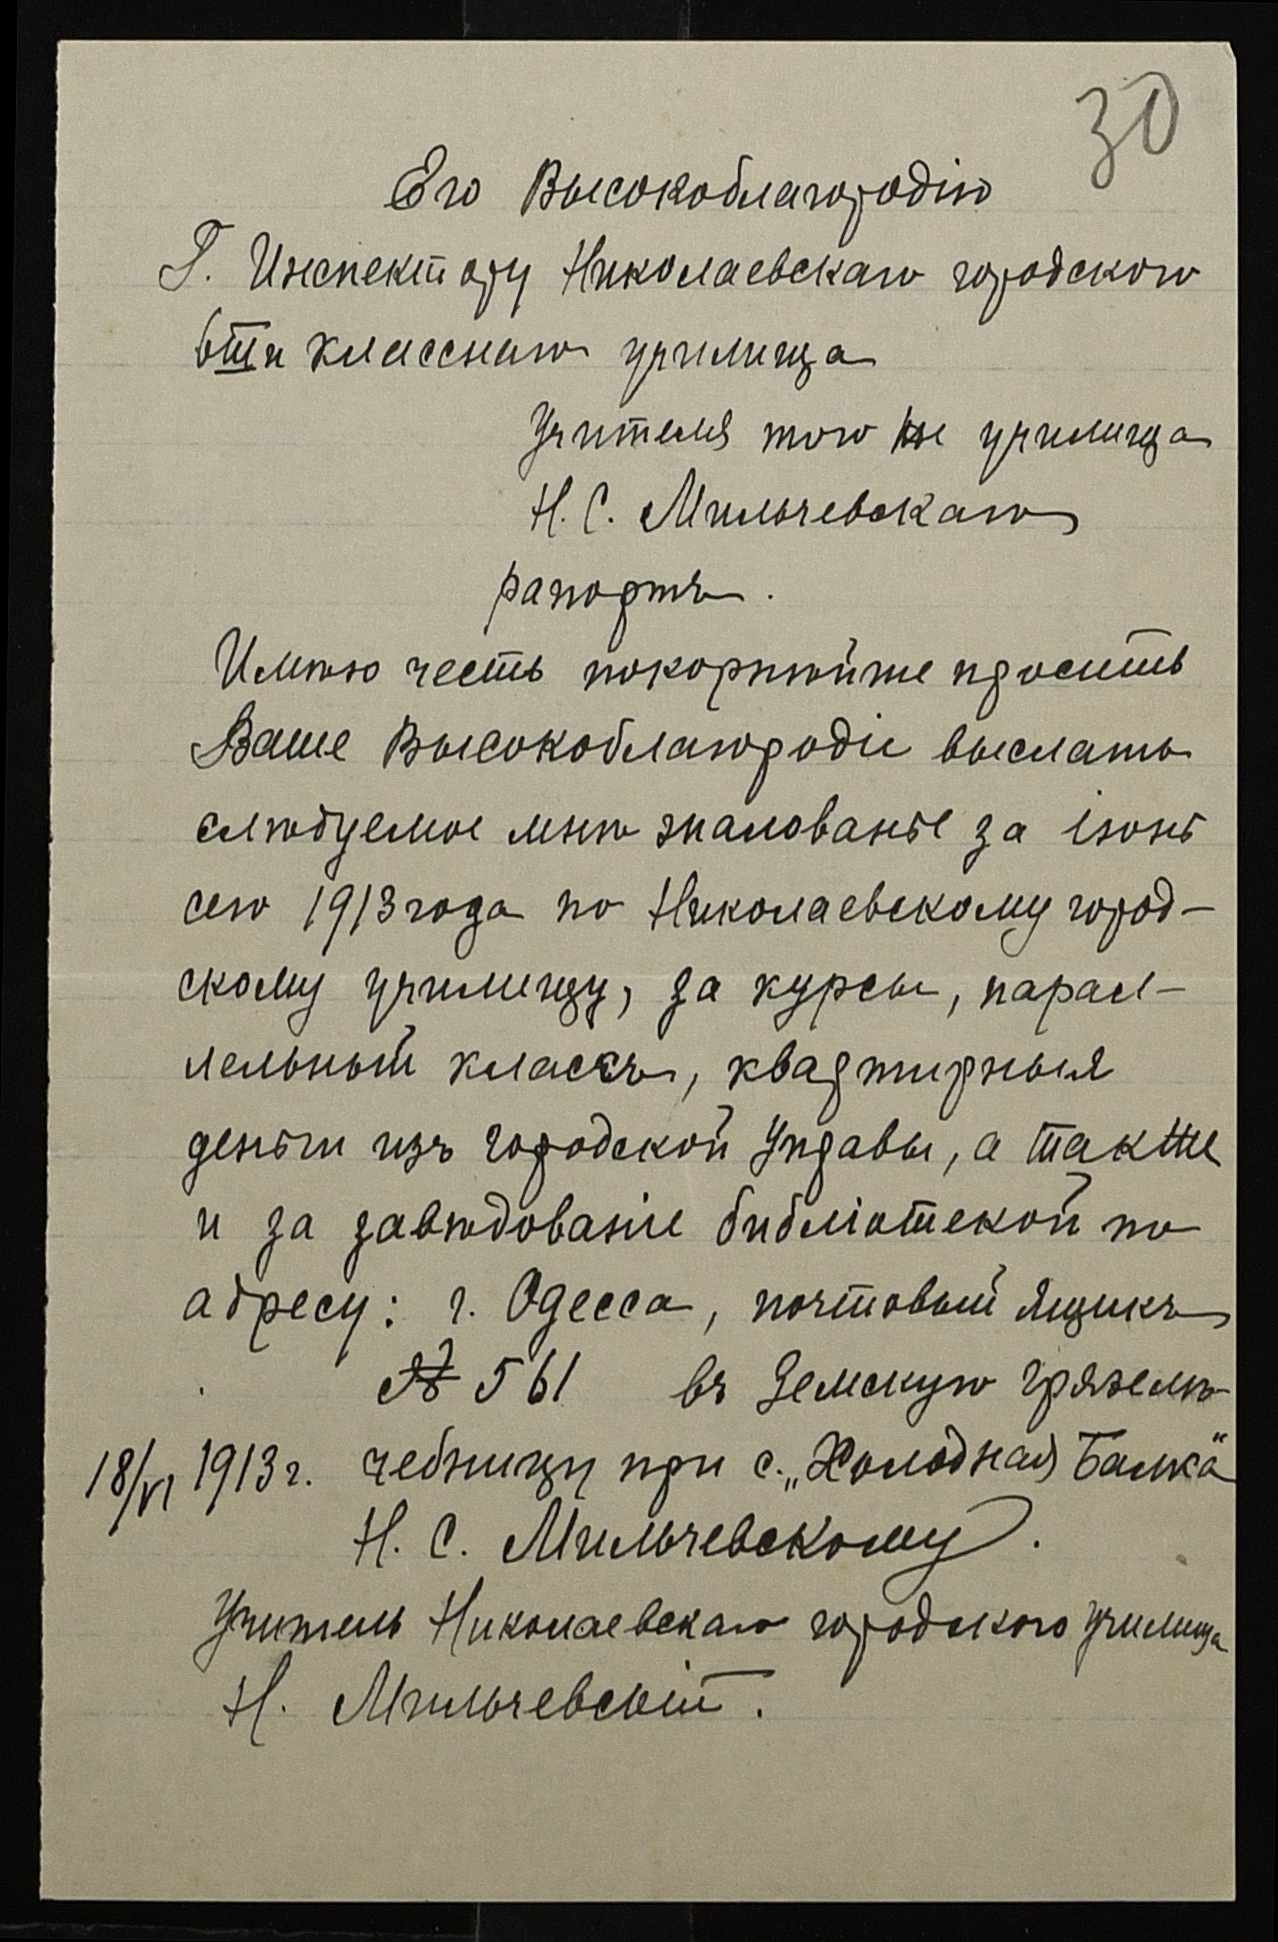 30
Его Высокоблагородію
Г. Инспектору Николаевскаго городского
6ти класснаго училища
Учителя того же училища
Н. С. Мильчевскаго
рапортъ.
Имѣю честь покорнѣйше просить
Ваше Высокоблагородіе выслать
слѣдуемое мнѣ жалованье за іюнь
сего 1913 года по Николаевскому город-
скому училищу, за курсы, парал-
лельный классъ, квартирныя
деньги изъ городской Управы, а также
и за завѣдованіе библіотекой по
адресу: г. Одесса, почтовый ящикъ
№ 561 въ Земскую грязелѣ-
18/VI 1913 г. чебницу при с. „Холодная Балка"
Н. С. Мильчевскому.
Учитель Николаевскаго городского училища
Н. Мильчевскій.